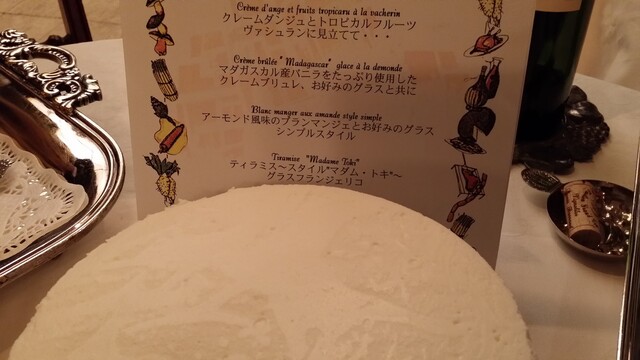 Crème d'ange et fruits tropicaru à la vacherin
クレームダンジュとトロピカルフルーツ
ヴァシュランに見立てて・・・
Crème brûlée "Madagascar" glace à la demonde
マダガスカル産バニラをたっぷり使用した
クレームブリュレ、お好みのグラスと共に
Blanc manger aux amande style simple
アーモンド風味のブランマンジェとお好みのグラス
シンプルスタイル
Tiramisu "Madame Toki"
ティラミス～スタイル"マダム・トキ"～
グラスフランジェリコ